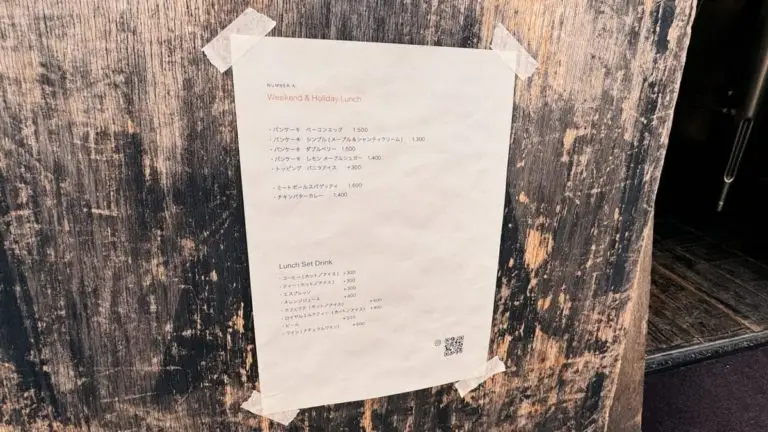 NUMBER A
Weekend & Holiday Lunch
・パンケーキ ベーコンエッグ 1.500
・パンケーキ シンプル(メープル&シャンティクリーム) 1.300
・パンケーキ ダブルベリー 1.500
・パンケーキ レモン メープルシュガー 1.400
・トッピング バニラアイス +300
・ミートボールスパゲッティ 1.600
・チキンバターカレー 1.400
Lunch Set Drink
・コーヒー(ホット/アイス) +300
・ティー(ホット/アイス) +300
・エスプレッソ +300
・オレンジジュース +400
・カフェラテ(ホット/アイス)
・ロイヤルミルクティー(ホット/アイス) +400
・ビール +500
・ワイン(ナチュラルワイン)